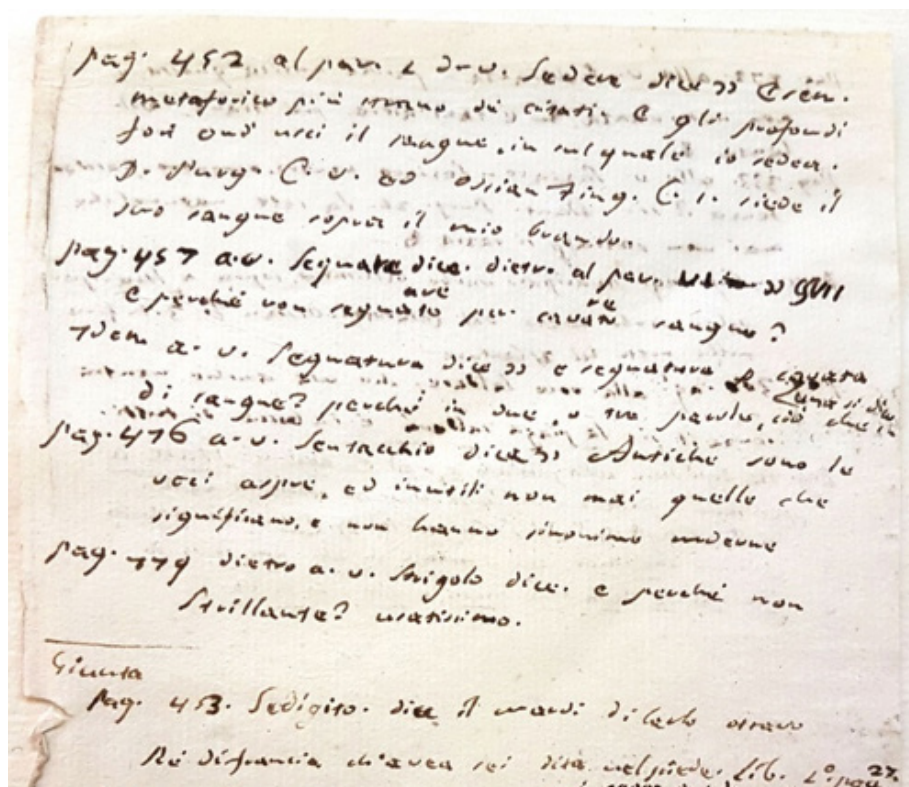 pag. 452 al par. 2 d-v. Sedere dice Esem.
metaforico più strano dei citati. E gli profondi
fori ond' uscì il sangue, in sul quale io sedea.
D. Purg. C. v. ed Ossian Fing. C. 1. siede il
suo sangue sopra il mio brando.
pag. 457 a.v. Segnare dice. dietro al par. XVII
e perché non segnare per cavare sangue?
Idem a. v. Segnatura dice e segnatura
di sangue? perché in due, o tre parole, ciò che
pag. 476 a.v. Sentacchio dice Antiche sono le
voci aspre, ed inutili non mai quelle che
significano, e non hanno sinonimo moderne
pag. 779 dietro a. v. Strigolo dice. e perché non
Strillante? usatissimo.
Giunta
pag. 453. Sedigito. dice il di Carlo ottavo
Re di francia ch'avea sei dita nel piede. Lib. 2°. pag 27.